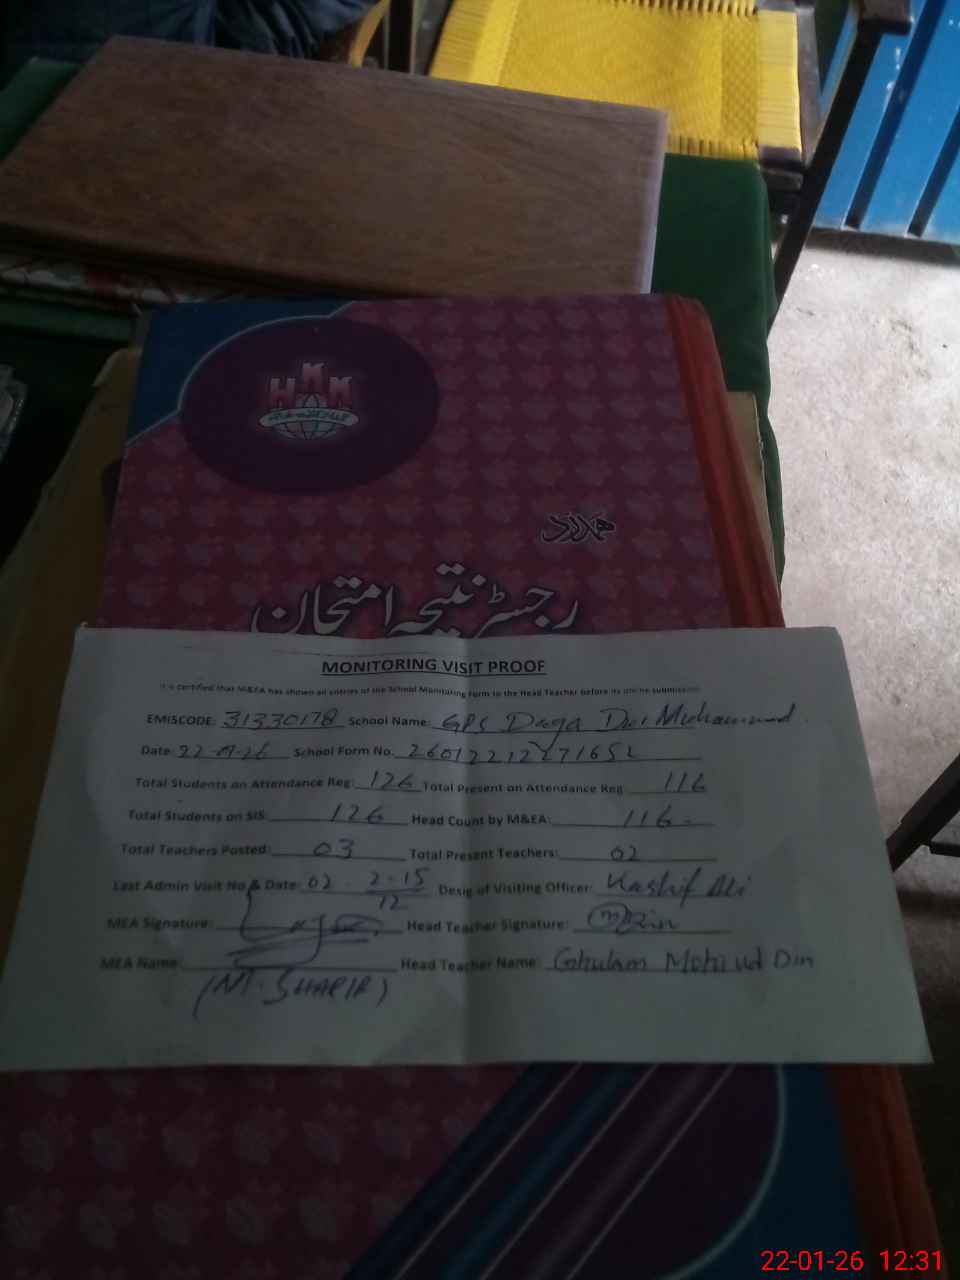 HKK
ہمدرد
رجسٹر نتیجہ امتحان
MONITORING VISIT PROOF
It is certified that M&EA has shown all entries of the School Monitoring Form to the Head Teacher before its online submission
EMISCODE: 31330178 School Name: GPS Daga Dur Muhammad
Date: 22-01-26 School Form No.
Total Students on Attendance Reg: 126 Total Present on Attendance Reg 116
Total Students on SIS: 126 Head Count by M&EA: 116
Total Teachers Posted: 03 Total Present Teachers: 02
Last Admin Visit No & Date: 02 - 2-15/12 Desig of Visiting Officer: Kashif Ali
MEA Signature: Head Teacher Signature:
MEA Name: Head Teacher Name: Ghulam Mohi ud Din
(M. SHARIF)
22-01-26 12:31